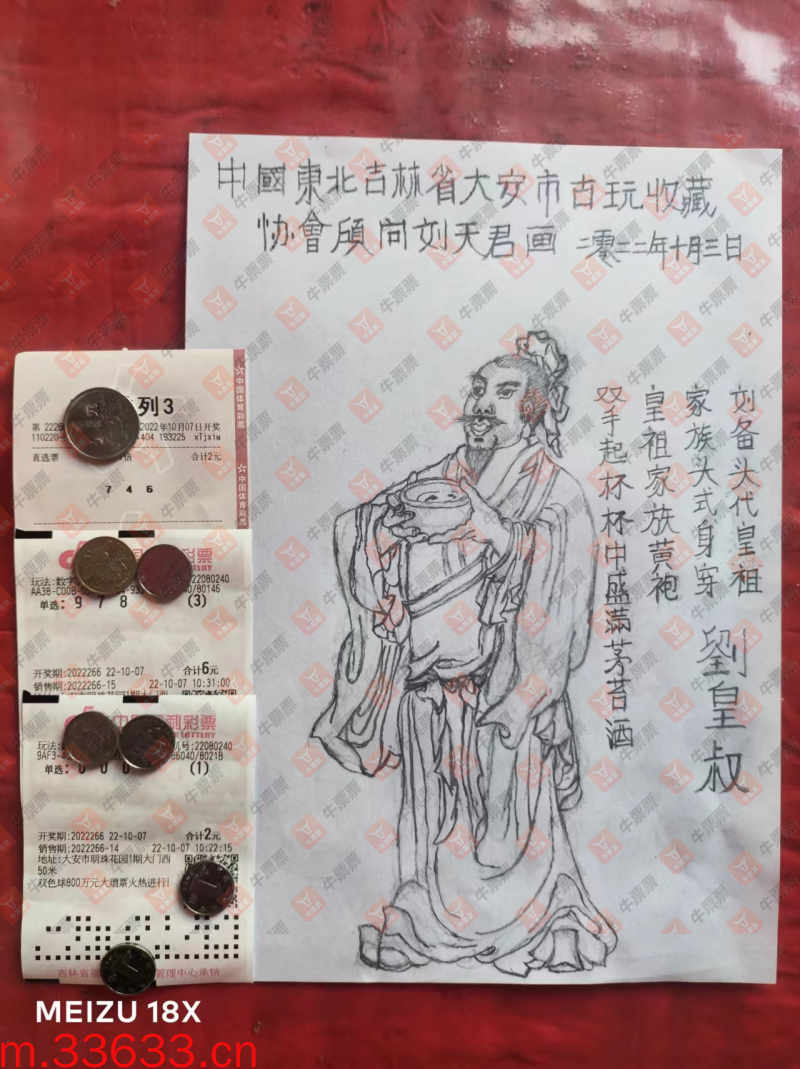 中國東北吉林省大安市古玩收藏
协會顾问刘天君画 二零二二年十月三日
刘备头代皇祖
家族头式身穿
皇祖家族黄袍
双手起杯杯中盛滿茅苔酒
劉皇叔
列3
2022年10月07日开奖
110220-
404 193225 xTjxiw
直选票
合计2元
7 4 6
中国体育彩票
中国体育彩票
彩票
玩法:数字
22080240
AA38-C00B-
40/80146
单选: 9 7 8 (3)
开奖期:2022266 22-10-07 合计6元
销售期:2022266-15 22-10-07 10:31:00
利彩票
LOTTERY
玩法:
机号:22080240
9AF3-
66040/80218
单选: 0 0 0 (1)
开奖期:2022266 22-10-07 合计2元
销售期:2022266-14 22-10-07 10:22:15
地址:大安市明珠花园1期大门西
50米
双色球800万元大赠票火热进行
吉林省
管理中心承销
牛票票
MEIZU 18X
m.33633.cn